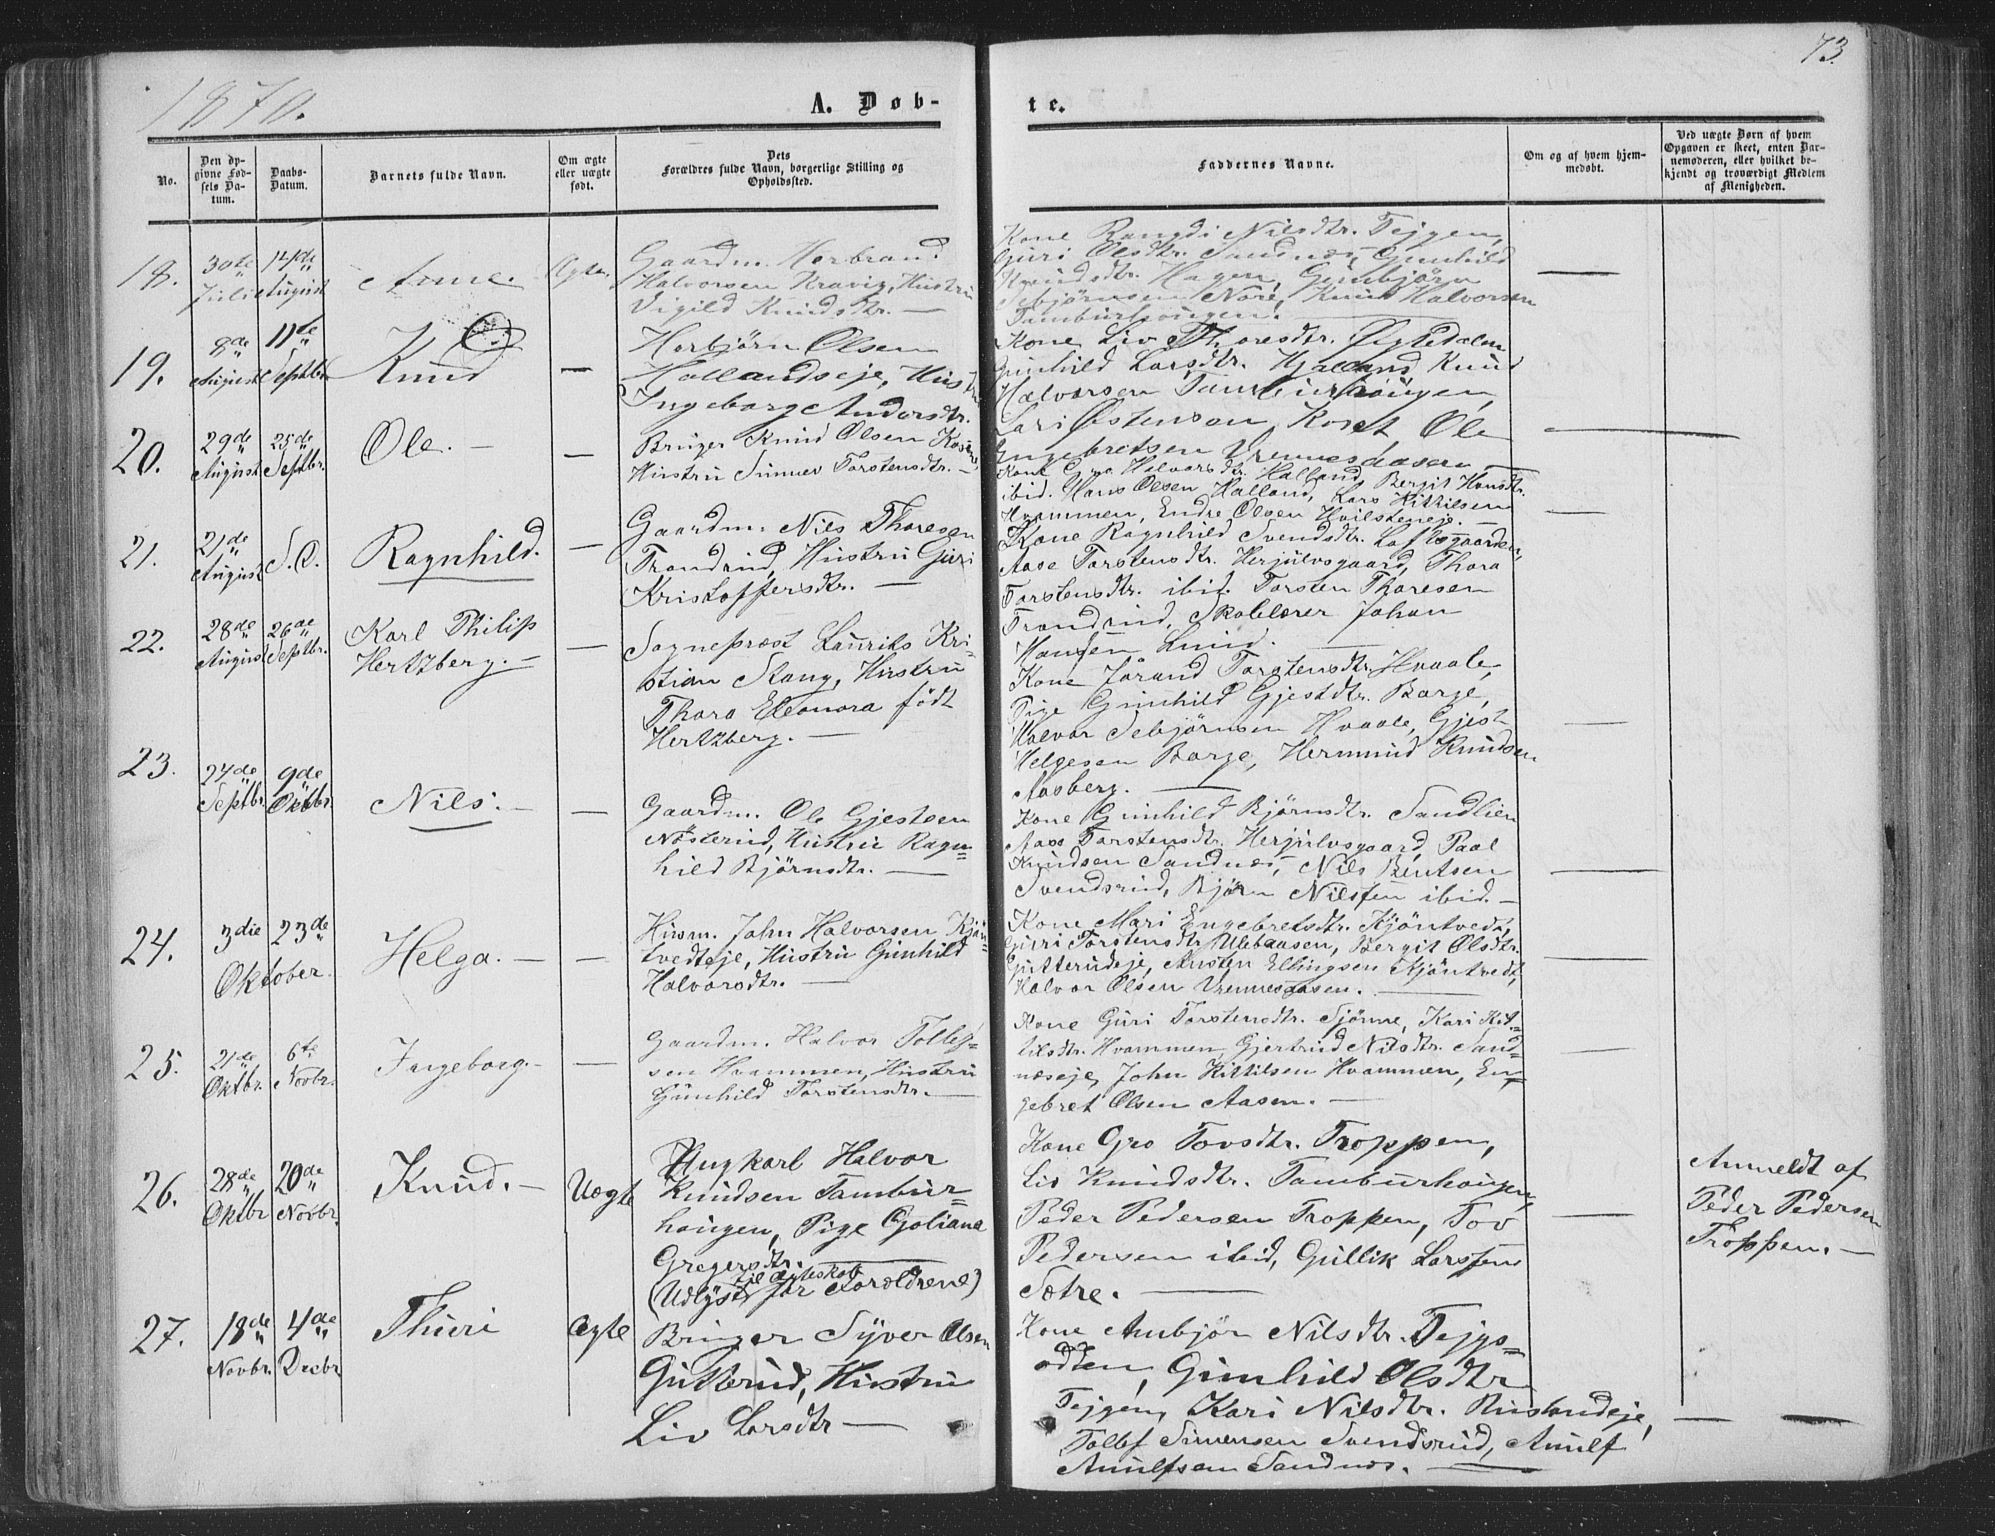 1870.
A. Døb-
te.
73.
No.
Den opgivne Fødsels Datum.
Daabs-Datum.
Barnets fulde Navn.
Om ægte eller uægte født.
Dets Forældres fulde Navn, borgerlige Stilling og Opholdssted.
Faddernes Navne.
Om og af hvem hjemmedøbt.
Ved uægte Børn af hvem Opgaven er skeet, enten Barnemoderen, eller hvilket bekjendt og troværdigt Medlem af Menigheden.
18.
30te Juli
14de August
Anne.
Ægte.
Gaardm. Herbrand
Halvorsen Kravig, Hustru
Vigild Knudsdtr. —
Kone Rangdi Nilsdtr. Tejgen,
Guri Olsdtr. Sandnæs, Gunhild
Knudsdtr. Hagen, Gunbjörn
Sebjörnsen Nore, Knud Halvorsen
Tamburhougen. —
—
19.
8de August
11te Septbr.
Knud
—
Herbjörn Olsen
Hollandseje, Hustru
Ingeborg Andersdtr.
Kone Liv Thoresdtr. Øygedalen
Gunhild Larsdtr. Hjalland Knud
Halvorsen Tamburhougen,
Lars Østenson Koset, Ole
Engebretsen Vrennesaasen —
—
20.
29de August
25de Septbr.
Ole. —
—
Bruger Knud Olsen
Hustru Sunnev Torstensdtr. —
Kone Gro Halvorsdtr. Halland, Bergit Hansdtr.
ibid. Hans Olsen Halland, Lars Kittilsen
Hvammen, Endre Olsen Hvilsteneje. —
—
21.
21de August
S. D.
Ragnhild.
—
Gaardm. Nils Thoresen
Trondrud, Hustru Guri
Kristoffersdtr. —
Kone Ragnhild Svendsdtr. Loftsgaarden,
Aase Torstensdtr. Herjulvsgaard, Thora
Torstensdtr. ibid. Torsten Thoresen
Trondrud, Skolelærer Johan
Hansen Lund. —
22.
28de August
26de Septbr.
Karl Philip
Hertzberg. —
—
Sognepræst Lauriks Kri-
stian Stang, Hustru
Thora Eleonora født
Hertzberg. —
Kone Jörand Torstensdtr. Hvaale,
Pige Gunhild Gjestdtr. Borge,
Halvor Sebjörnsen Hvaale, Gjest
Helgesen Borge, Hermund Knudsen
Aasberg. —
—
23.
27de Septbr.
9de Oktbr.
Nils. —
—
Gaardm. Ole Gjesteen
Nösterud, Hustru Ragn-
hild Björnsdtr. —
Kone Gunhild Björnsdtr. Sandlien
Aase Torstensdtr. Herjulvsgaard, Paal
Knudsen Sandnæs, Nils Bentsen
Svendsrud, Björn Nilssen ibid. —
—
24.
3die
23de
Oktober.
Helga. —
—
Husm. John Halvorsen Kjön-
tvedteje, Hustru Gunhild
Halvorsdtr. —
Kone Mari Engebretsdtr. Kjöntvedt,
Guri Torstensdtr. Ulebaasen, Bergit Olsdtr.
Gutterudeje, Austen Ellingsen Kjöntvedt,
Halvor Olsen Vrennesaasen. —
—
25.
21de Oktbr.
6te Novbr.
Ingeborg. —
—
Gaardm. Halvor Tollef-
sen Hvammen, Hustru
Gunhild Torstensdtr. —
Kone Guri Torstensdtr. Sjönne, Kari Kit-
tilsdtr. Hvammen, Gjertrud Nilsdtr. Sand-
næseje, John Kittilsen Hvammen, En-
gebret Olsen Aasen. —
—
26.
28de Oktbr.
20de Novbr.
Knud. —
Uægte
Ungkarl Halvor
Knudsen Tambur-
hougen, Pige Goliana
Gregersdtr. —
(Udlyst til Ægteskab for Forældrene)
Kone Gro Tovsdtr. Troppen,
Liv Knudsdtr. Tamburhougen,
Peder Pedersen Troppen, Tov
Pedersen ibid, Gullik Larssen
Sætre. —
—
Anmeldt af
Peder Pedersen
Troppen. —
27.
18de Novbr.
4de Decbr.
Thuri
Ægte
Bruger Syver Olsen
Gutterud, Hustru
Liv Larsdtr —
Kone Anbjör Nilsdtr. Tejgs-
odden, Gunhild Olsdtr
Tejgen, Kari Nilsdtr. Rustandeje,
Tollef Simensen Svendsrud, Anulf
Anulfsen Sandnæs. —
—
—